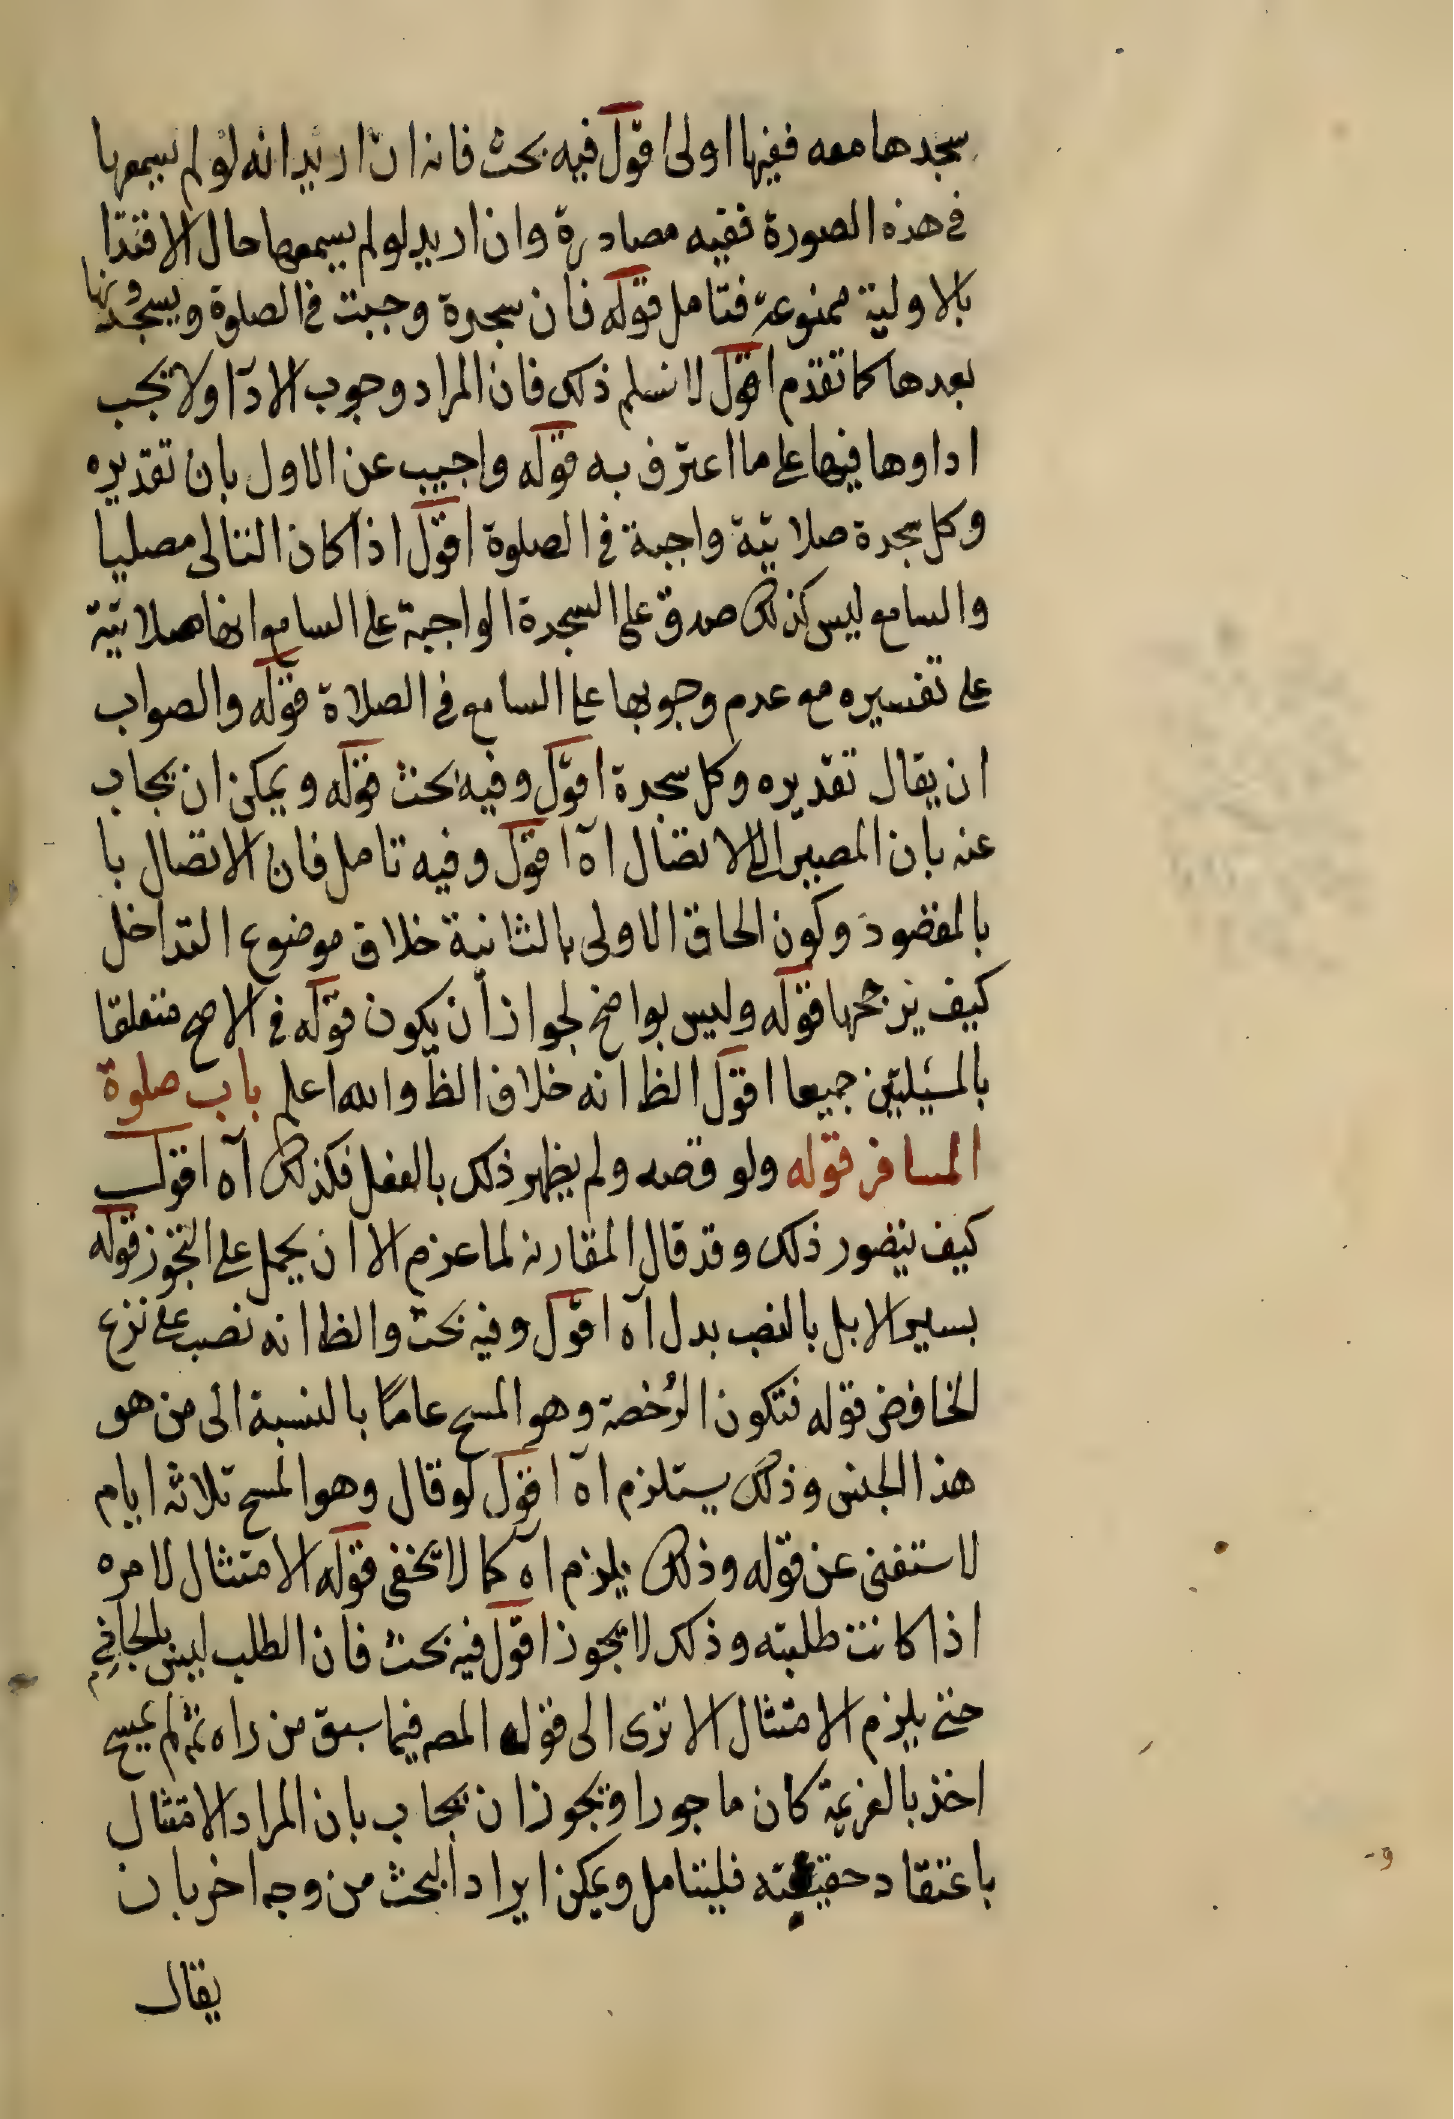 سجدها معه ففيها اولى اقول فيه بحث فانه ان اريد انه لو لم يسمعها
فى هذه الصورة ففيه مصادرة وان اريد لو لم يسمعها حال الاقتدا
بالاولية ممنوعة فتامل قوله فان سجدة وجبت فى الصلوة ويسجدونها
بعدها كما تقدم اقول لا نسلم ذلك فان المراد وجوب الادآ ولا تجب
اداوها فيها على ما اعترف به قوله واجيب عن الاول بان تقديره
وكل سجدة صلاتية واجبة فى الصلوة اقول اذا كان التالى مصليا
والسامع ليس كذلك صدق على السجدة الواجبة على السامع انها صلاتية
على تفسيره مع عدم وجوبها على السامع فى الصلاة قوله والصواب
ان يقال تقديره وكل سجدة اقول وفيه بحث قوله ويمكن ان يجاب
عنه بان المصير الى الاتصال اه اقول وفيه تامل فان الاتصال با
بالمقصود وكون الحاق الاولى بالثانية خلاف موضوع التداخل
كيف يرجحها قوله وليس بواضح لجواز أن يكون قوله فى الاصح متعلقا
بالمسئلتين جميعا اقول الظ انه خلاف الظ والله اعلم باب صلوة
المسافر قوله ولو قصد ولم يظهر ذلك بالفعل فكذلك آه اقول
كيف يتصور ذلك وقد قال المقارنه لما عزم الا ان يحمل على التجوز قوله
بسير الابل بالنصب بدل آه اقول وفيه بحث والظ انه نصب على نزع
الخافض قوله فتكون الرُخصة وهو المسح عامًا بالنسبة الى من هو
هذا الجنس وذلك يستلزم آه اقول لو قال وهو المسح ثلاثه ايام
لاستغنى عن قوله وذلك يلزم آه كما لا يخفى قوله الامتثال لامره
اذا كانت طلبته وذلك لا يجوز اقول فيه بحث فان الطلب ليس بالجازم
حتى يلزم الامتثال الا ترى الى قوله المصـ فيما سبق من راه ثم لم يمسح
اخذ بالعزيمة كان ماجورا ويجوز ان يجاب بان المراد الامتثال
باعتقاد حقيته فليتامل ويمكن ايراد البحث من وجه اخر بان
يقال